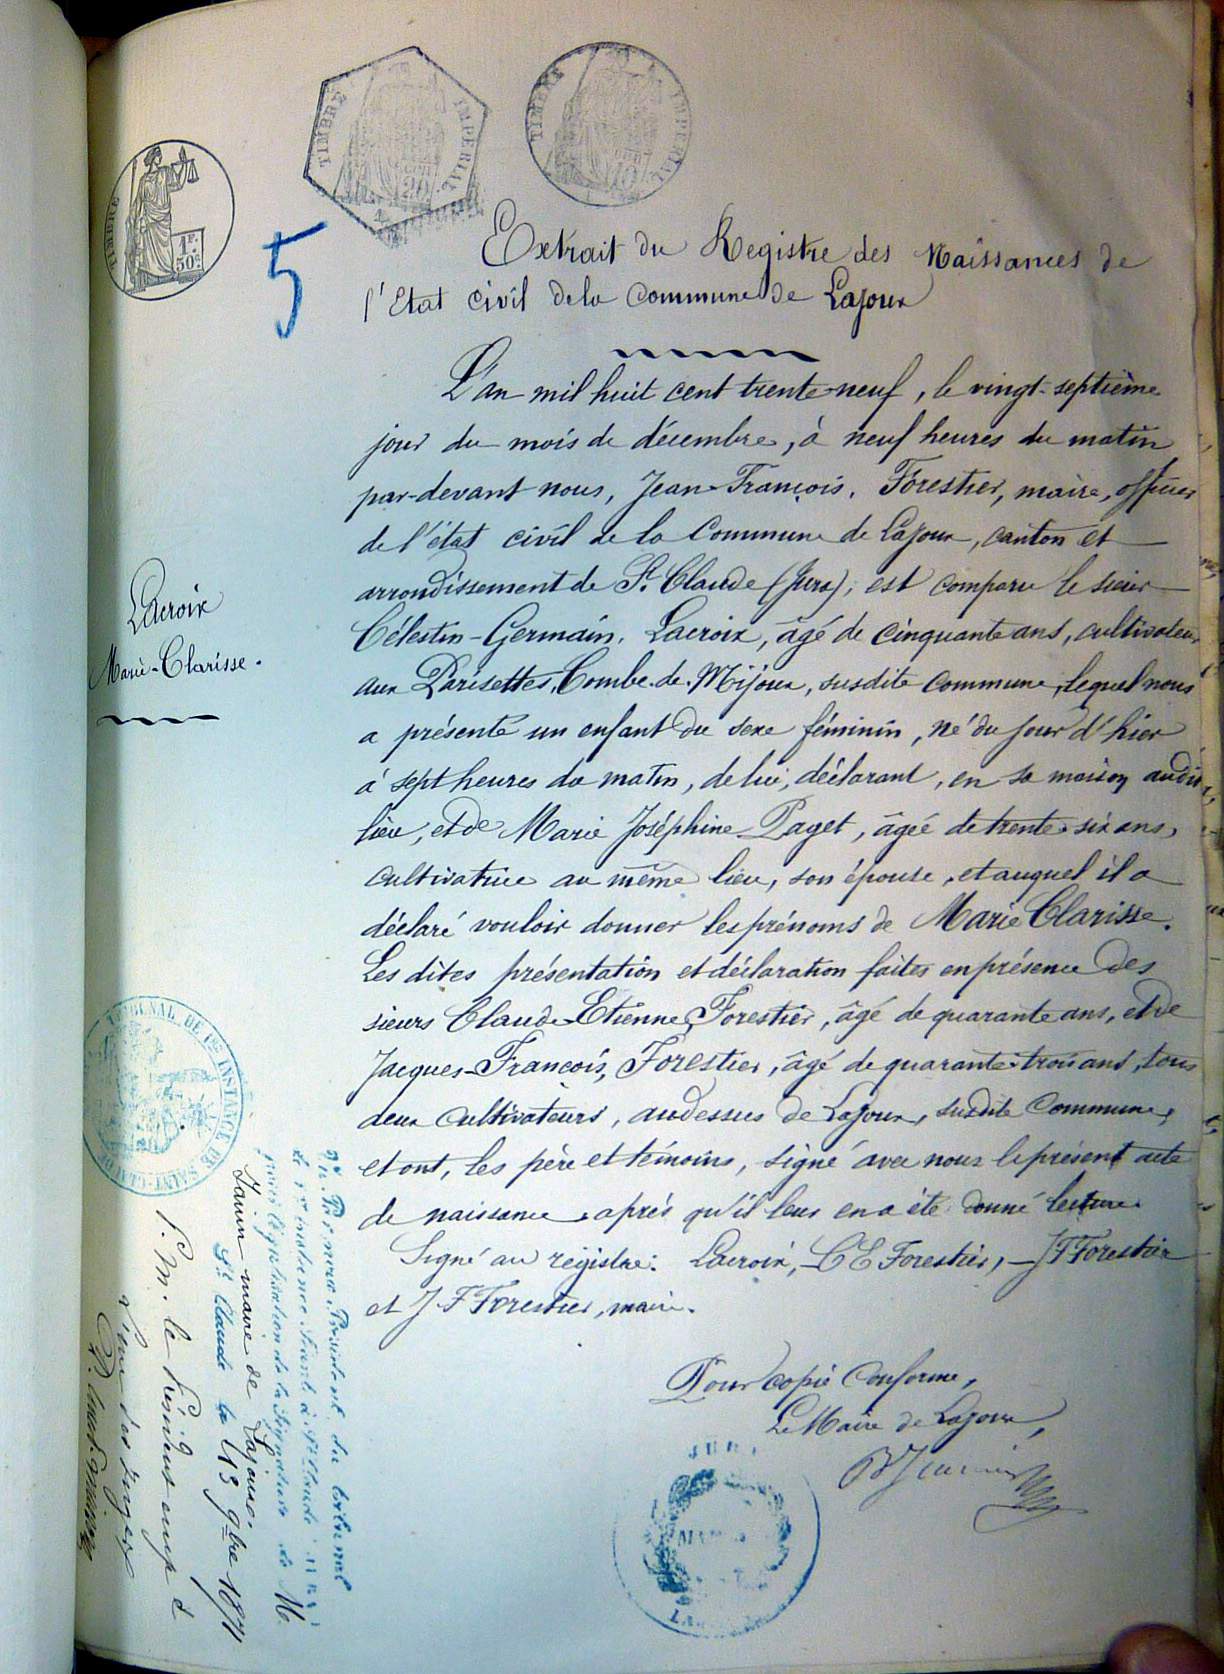 TIMBRE IMPERIAL
TIMBRE IMPERIAL
TIMBRE
1F. 50c
5
Extrait du Registre des Naissances de
l'Etat civil de la Commune de Lajoux
L'an mil huit cent trente neuf, le vingt-septième
jour du mois de décembre, à neuf heures du matin
par-devant nous, Jean-François, Forestier, maire, officier
de l'état civil de la Commune de Lajoux, canton et
arrondissement de St Claude (Jura), est comparu le sieur
Célestin-Germain, Lacroix, âgé de cinquante ans, cultivateur
aux Parisettes, Combe de Mijoux, susdite commune, lequel nous
a présenté un enfant du sexe féminin, né du jour d'hier
à sept heures du matin, de lui, déclarant, en sa maison audit
lieu, et de Marie Joséphine Paget, âgée de trente six ans,
cultivatrice au même lieu, son épouse, et auquel il a
déclaré vouloir donner les prénoms de Marie Clarisse.
Les dites présentation et déclaration faites en présence des
sieurs Claude Etienne Forestier, âgé de quarante ans, et de
Jacques-François, Forestier, âgé de quarante trois ans, tous
deux cultivateurs, audessus de Lajoux, susdite Commune,
et ont, les père et témoins, signé avec nous le présent acte
de naissance après qu'il leur en a été donné lecture.
Signé au registre: Lacroix, C E Forestier, J F Forestier
et J. F Forestier, maire.
Pour copie conforme,
Le Maire de Lajoux,
Lacroix
Marie-Clarisse.
TRIBUNAL DE 1ERE INSTANCE DE SAINT-CLAUDE
Président du tribunal
de 1re instance séant à St Claude
pour légalisation de la signature de M.
maire de Lajoux.
St Claude le 13 9bre 1871
P. M. le Président empé
JURA